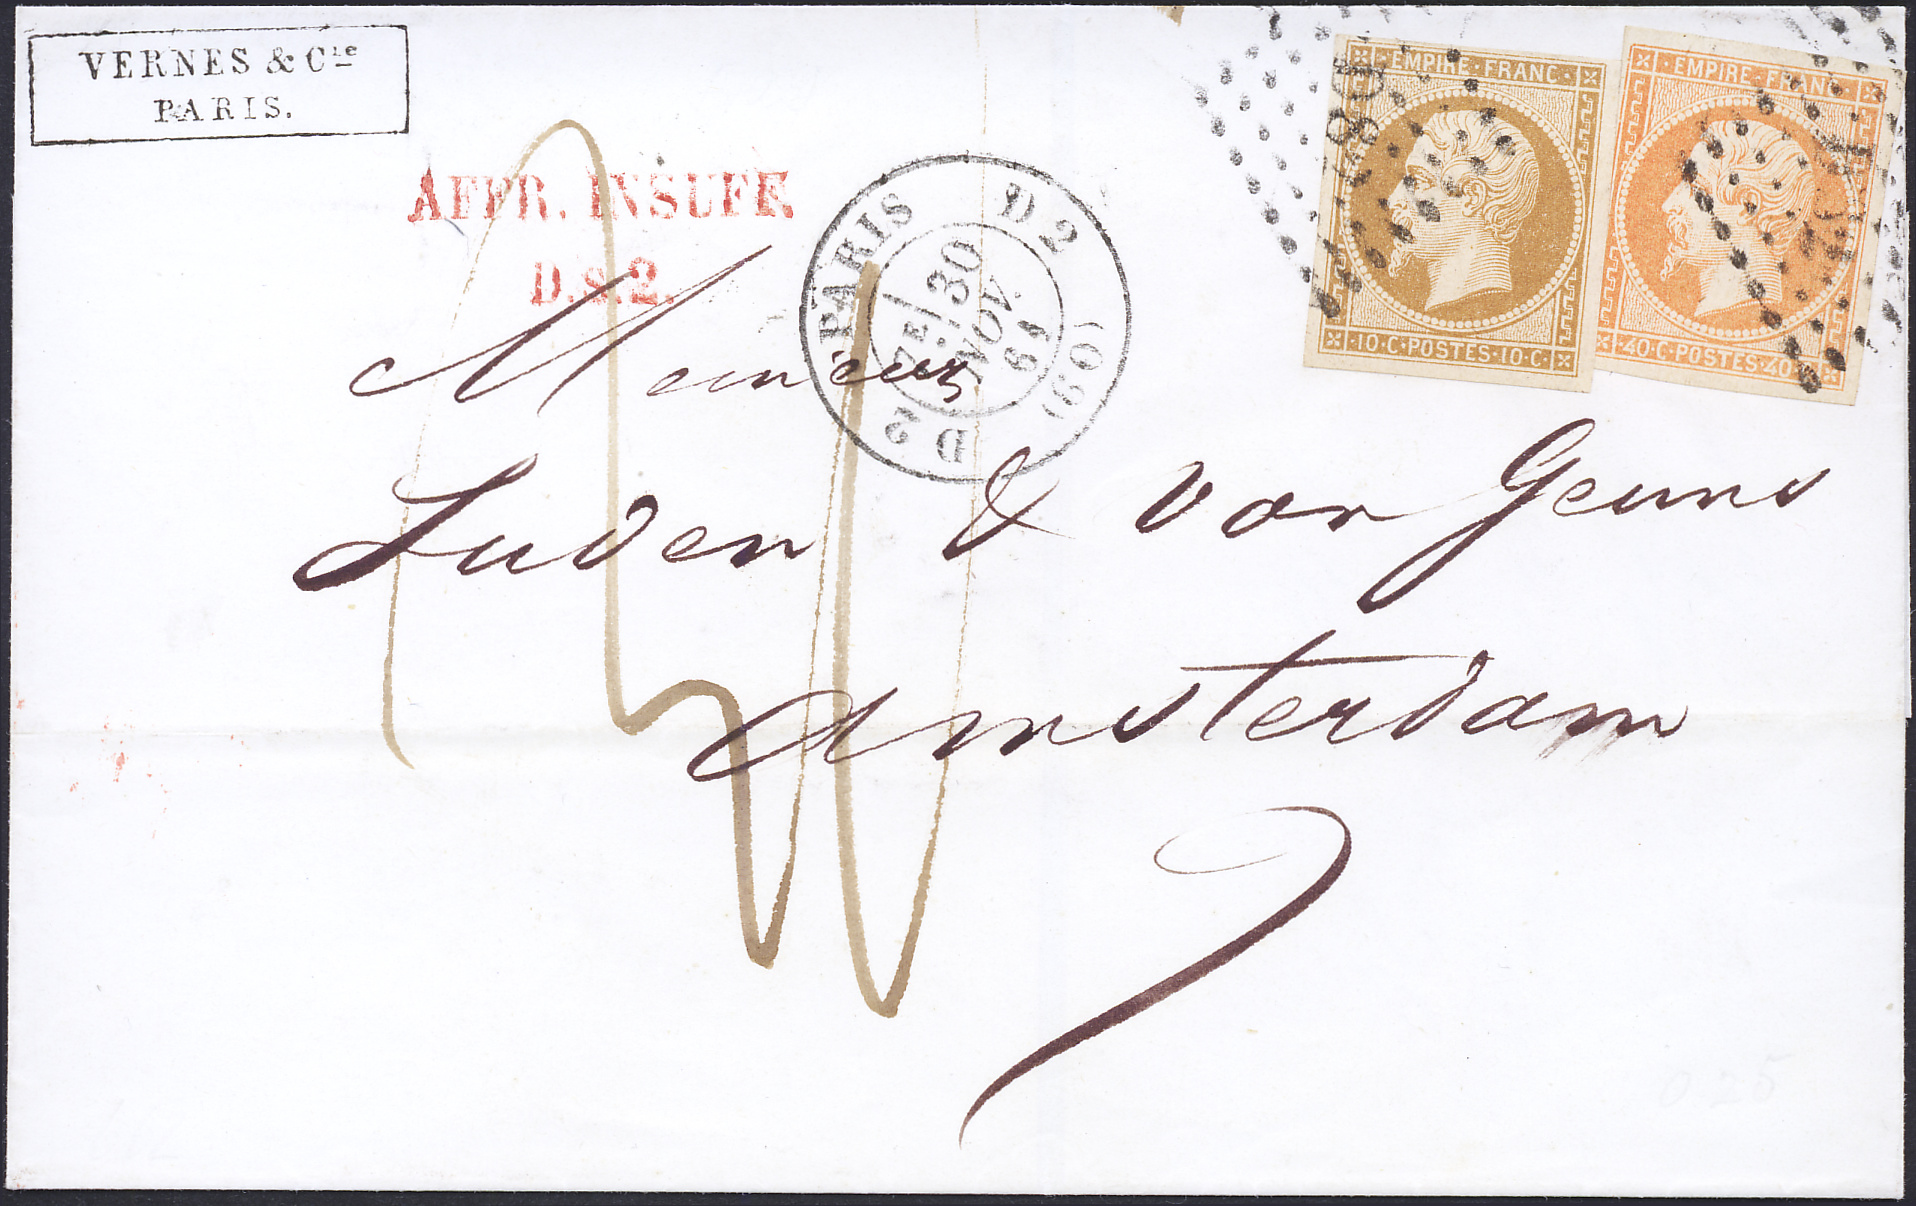 VERNES & Cie
PARIS.
AFFR. INSUFF.
D.S.2.
PARIS D2 (60)
7E
30
NOV.
61
D2
EMPIRE · FRANC ·
· 10 · C · POSTES · 10 · C ·
· EMPIRE · FRANC ·
· 40 · C · POSTES · 40 · C ·
Messieurs
Luden & von Geuns
Amsterdam